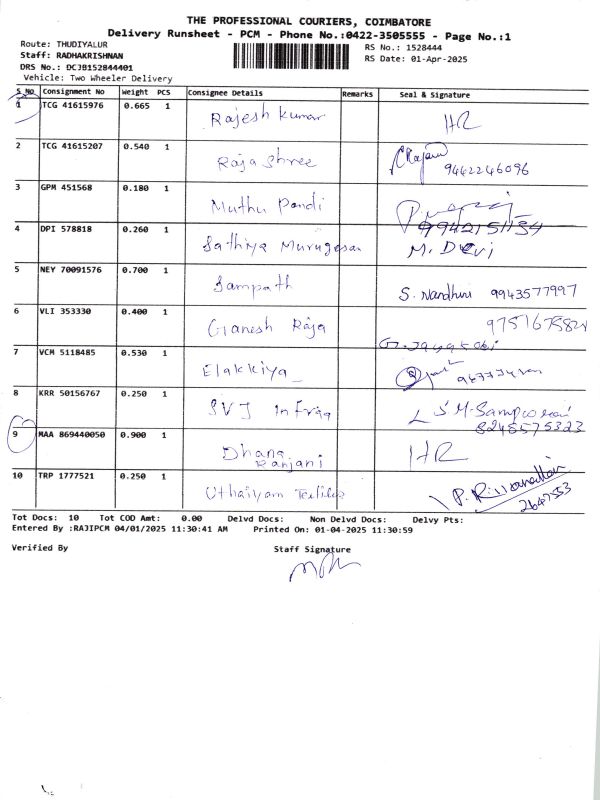 THE PROFESSIONAL COURIERS, COIMBATORE
Delivery Runsheet - PCM - Phone No.:0422-3505555 - Page No.:1
Route: THUDIYALUR
Staff: RADHAKRISHNAN
DRS No.: DCJB152844401
Vehicle: Two Wheeler Delivery
RS No.: 1528444
RS Date: 01-Apr-2025
S No Consignment No Weight PCS Consignee Details Remarks Seal & Signature
1 TCG 41615976 0.665 1 Rajesh Kumar HR
2 TCG 41615207 0.540 1 Raja Shree 9442246096
3 GPM 451568 0.180 1 Muthu Pandi
4 DPI 578818 0.260 1 Sathiya Murugesan M. Devi
5 NEY 70091576 0.700 1 Sampath S. Nandhini 9943577997
6 VLI 353330 0.400 1 Ganesh Raja
7 VCM 5118485 0.530 1 Elakkiya
8 KRR 50156767 0.250 1 SVJ Infraa 8248575323
9 MAA 869440050 0.900 1 Dhana Ranjani HR
10 TRP 1777521 0.250 1 Uthaiyam Textiles 2647553
Tot Docs: 10 Tot COD Amt: 0.00 Delvd Docs: Non Delvd Docs: Delvy Pts:
Entered By :RAJIPCM 04/01/2025 11:30:41 AM Printed On: 01-04-2025 11:30:59
Verified By Staff Signature